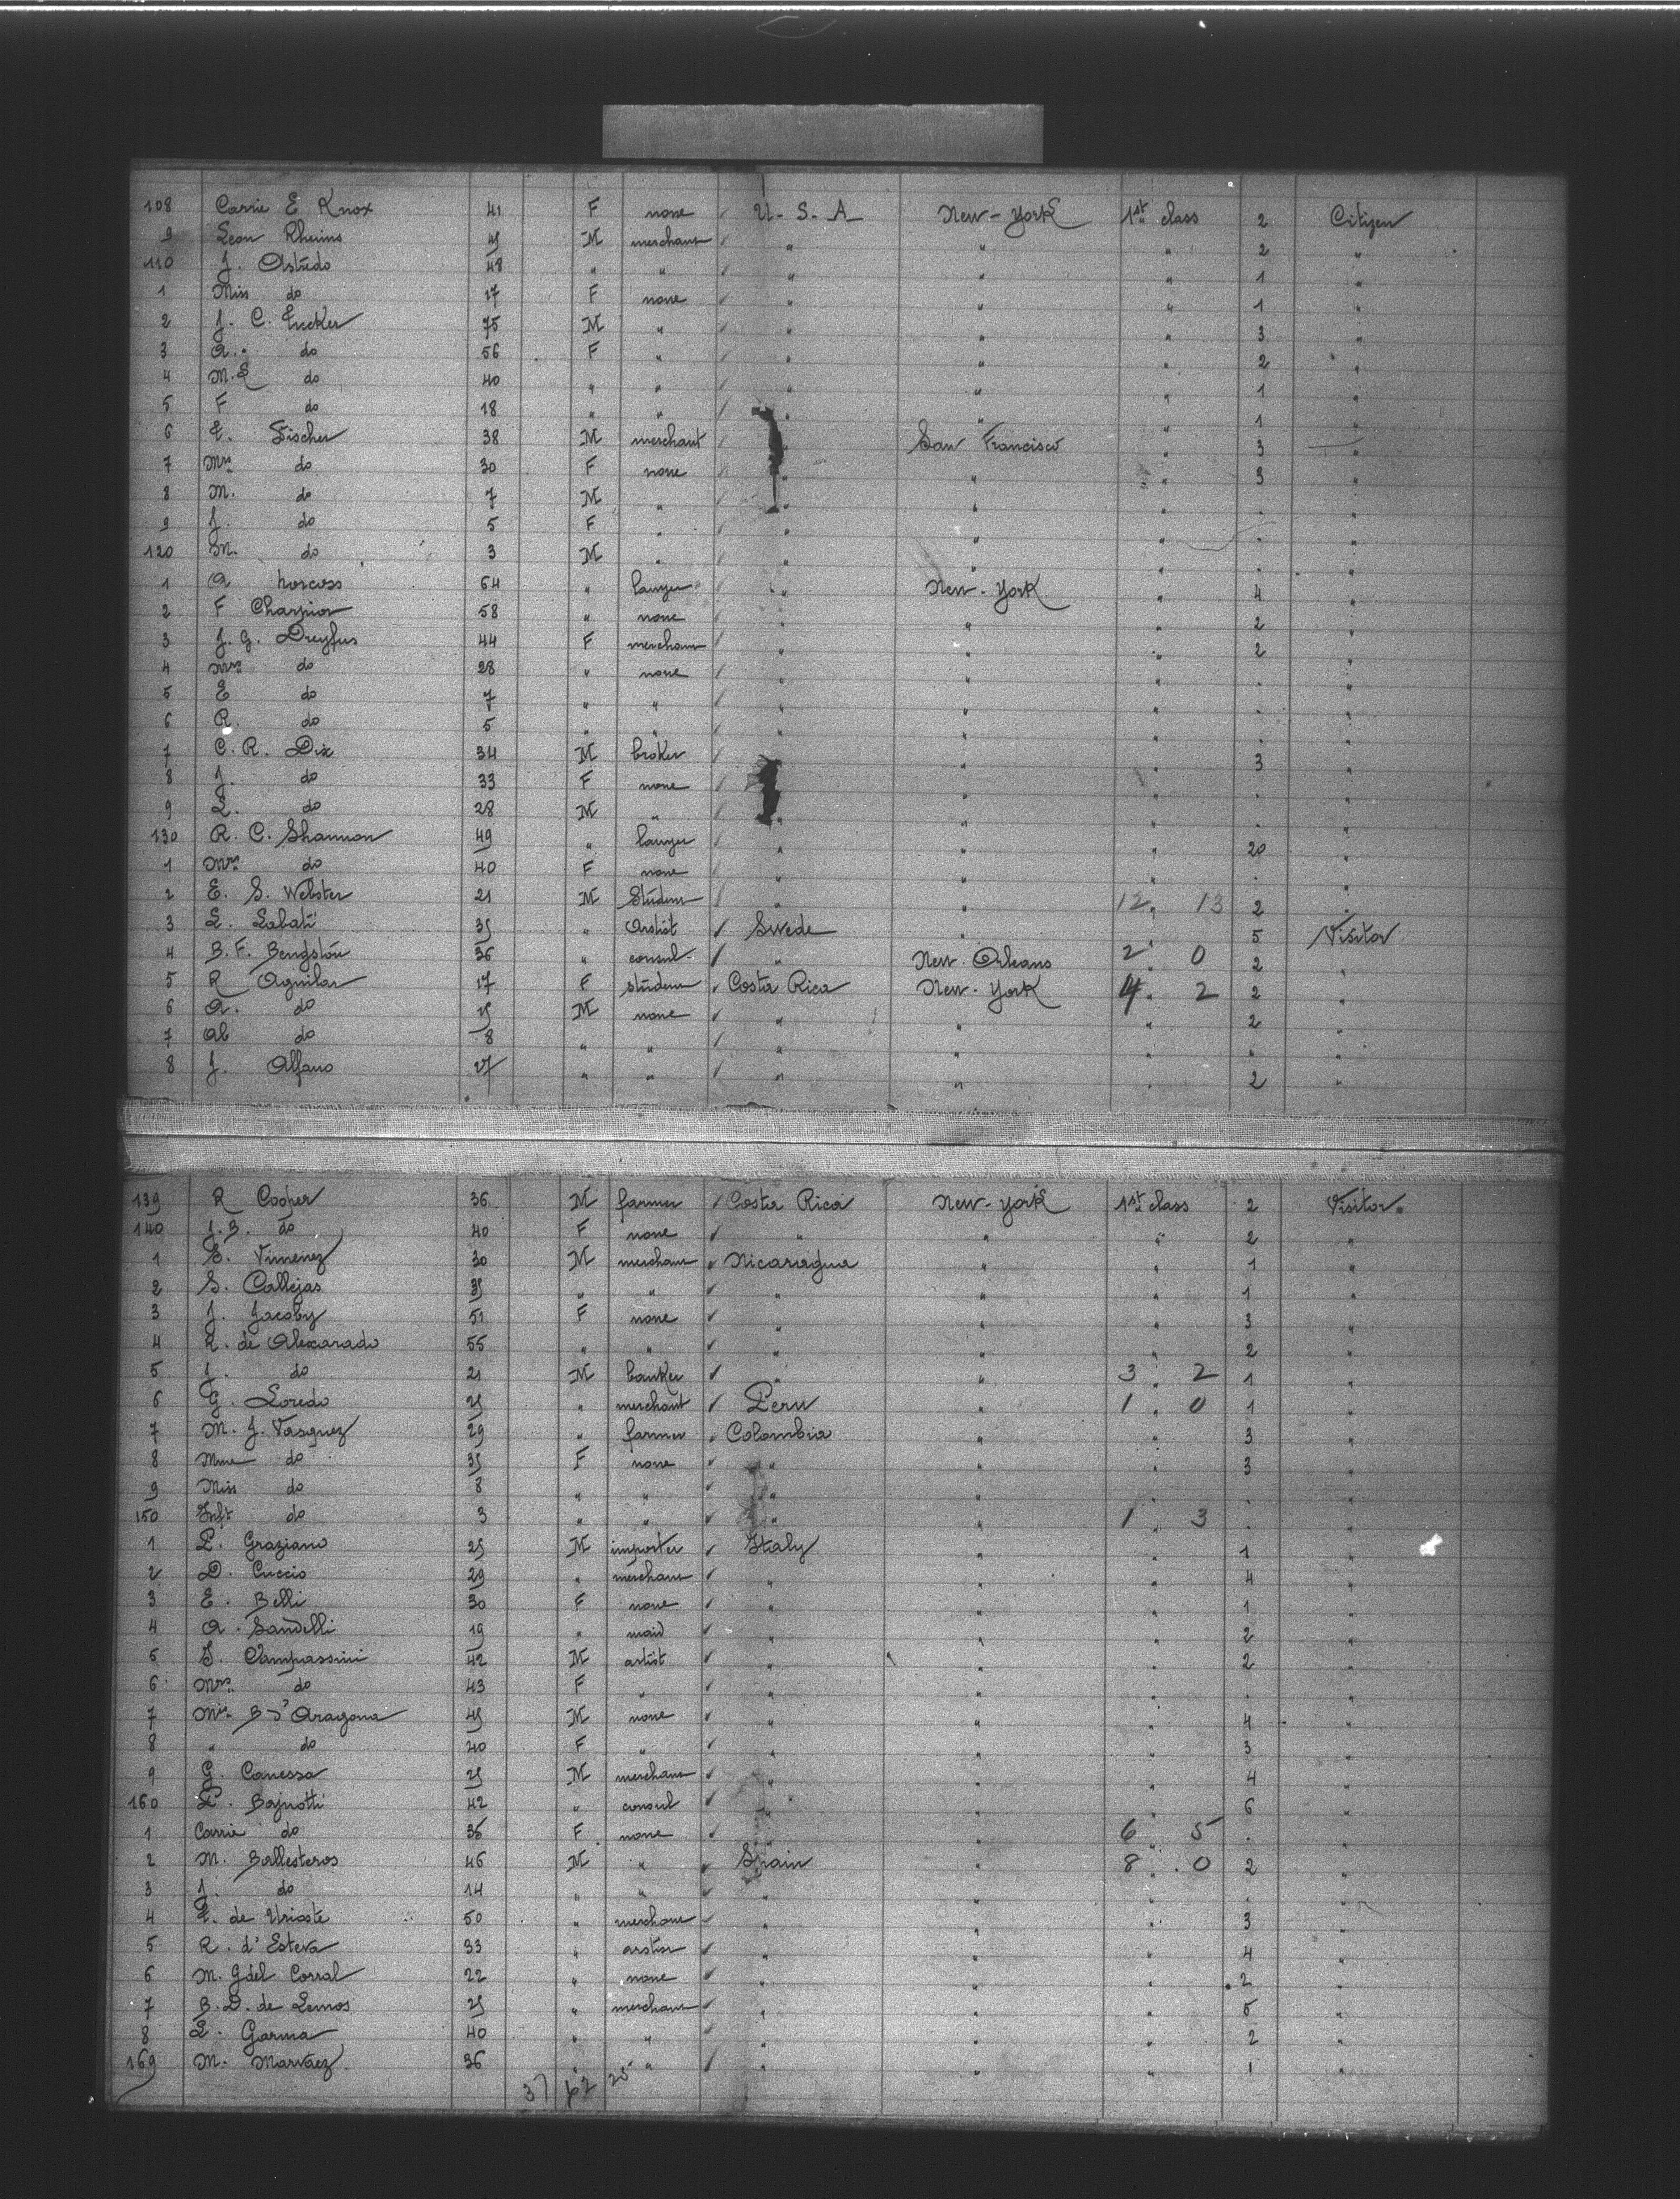 108 Carrie E Knox 41 F none U-S-A New-York 1st class 2 Citizen
9 Leon Rheims 45 M merchant " " " 2 "
110 J. Astudo 48 " " " " " 1 "
1 Miss do 17 F none " " " 1 "
2 J. C. Tucker 75 M " " " " 3 "
3 A. do 56 F " " " " 2 "
4 M.E do 40 " " " " " 1 "
5 F do 18 " " " " " 1 "
6 E. Fischer 38 M merchant " San Francisco " 3 "
7 Mrs do 30 F none " " " 3 "
8 M. do 7 M " " " " " "
9 J. do 5 F " " " " " "
120 M. do 3 M " " " " " "
1 A Norcross 64 " lawyer " New-York " 4 "
2 F Charpior 58 " none " " " 2 "
3 J. G. Dreyfus 44 F merchant " " " 2 "
4 Mrs do 28 " none " " " " "
5 E do 7 " " " " " " "
6 R. do 5 " " " " " " "
7 C. R. Dix 34 M broker " " " 3 "
8 J. do 33 F none " " " " "
9 L. do 28 M " " " " " "
130 R. C. Shannon 49 " lawyer " " " 20 "
1 Mrs do 40 F none " " " " "
2 E. S. Webster 21 M Student " " 12 " 13 2 "
3 L. Labati 35 " Artist Swede " " 5 Visitor
4 B. F. Bengston 36 " consul " New Orleans 2 " 0 2 "
5 R Aguilar 17 F student Costa Rica New-York 4 " 2 2 "
6 A. do 25 M none " " " 2 "
7 Ab do 8 " " " " " " "
8 J. Alfaro 27 " " " " " 2 "
139 R Cooper 36 M farmer Costa Rica New-York 1st class 2 Visitor
140 J. B. do 40 F none " " " 2 "
1 E. Ximenez 30 M merchant Nicaragua " " 1 "
2 S. Callejas 35 " " " " " 1 "
3 J. Jacoby 51 F none " " " 3 "
4 R. de 55 " " " " " 2 "
5 J. do 21 M banker " " 3 " 2 1 "
6 G. Loredo 25 " merchant Peru " 1 " 0 1 "
7 M. J. Vasquez 29 " farmer Colombia " " 3 "
8 Mme do 35 F none " " " 3 "
9 Miss do 8 " " " " " " "
150 Inft do 3 " " " " 1 " 3 " "
1 P. Graziano 25 M importer Italy " " 1 "
2 D. Cuccio 29 " merchant " " " 4 "
3 E. Belli 30 F none " " " 1 "
4 A. Sandelli 19 " maid " " " 2 "
5 J. Campassini 42 M artist " " " 2 "
6 Mrs do 43 F " " " " " "
7 Mr. B d'Aragona 45 M none " " " 4 "
8 " do 40 F " " " " 3 "
9 G. Canessa 25 M merchant " " " 4 "
160 P. Bajnotti 42 " consul " " " 6 "
1 Carrie do 35 F none " " 6 " 5 " "
2 M. Ballesteros 46 M " Spain " 8 " 0 2 "
3 J. do 14 " " " " " " "
4 E. de Urioste 50 " merchant " " " 3 "
5 R. d'Esteva 33 " artist " " " 4 "
6 M. G del Corral 22 " none " " " 2 "
7 B. D. de Lemos 25 " merchant " " " 5 "
8 L. Garma 40 " " " " " 2 "
169 M. Marvaez 36 " " " " " 1 "
37 62 25